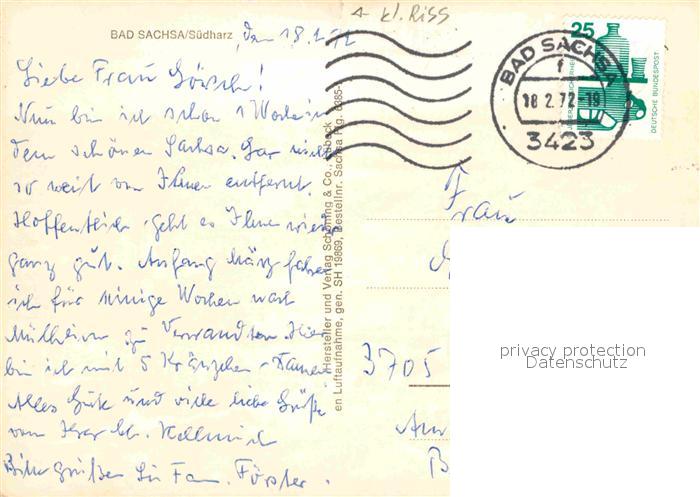 ← kl. Riss
BAD SACHSA/Südharz
den 18.2.72
Liebe Frau Görsch!
Nun bin ich schon 1 Woche in
dem schönen Sachsa. Gar nicht
so weit von Ihnen entfernt.
Hoffentlich geht es Ihnen wieder
ganz gut. Anfang März fahre
ich für einige Wochen nach
zu Verwandten. Hier
bin ich mit 5 Kränzchen-Damen
Alles Gute und viele liebe Grüße
von Ihrer
Bitte grüßen Sie Fam. Förster.
Hersteller und Verlag Schöning & Co., Lübeck
en Luftaufnahme, gen. SH 19869, Bestellnr. Sachsa Flg. 0385-
BAD SACHSA
f
18.2.72-18
3423
25
DEUTSCHE BUNDESPOST
Frau
3705
privacy protection
Datenschutz